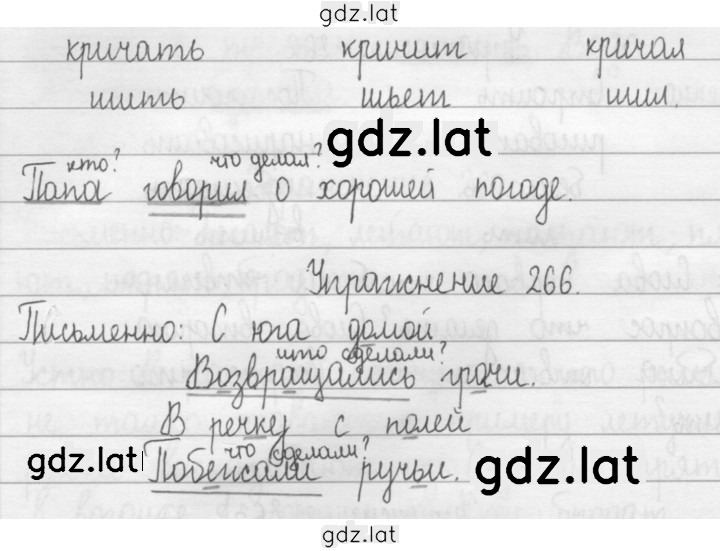 gdz.lat
кричать кричит кричал
шить шьет шил.
gdz.lat
кто? что делал?
Папа говорил о хорошей погоде.
Упражнение 266.
Письменно: С юга домой
что сделали?
Возвращались грачи.
В речку с полей
что сделали?
gdz.lat Побежали ручьи. gdz.lat
gdz.lat